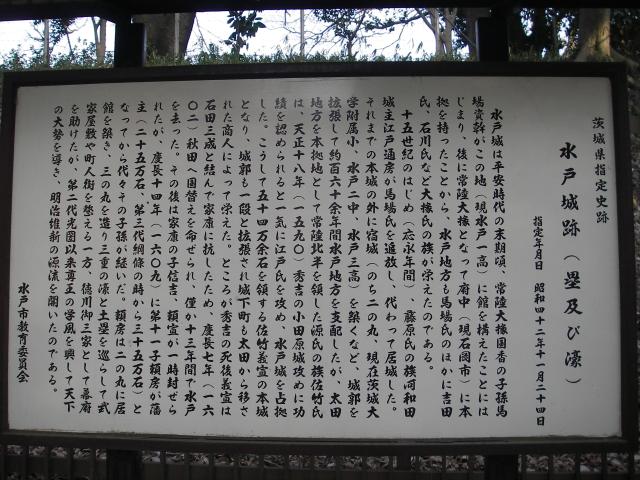 茨城県指定史跡
水戸城跡（塁及び濠）
指定年月日　昭和四十二年十一月二十四日
水戸城は平安時代の末期頃、常陸大掾国香の子孫馬
場資幹がこの地（現水戸一高）に館を構えたことには
じまり、後に常陸大掾となって府中（現石岡市）に本
拠を持ったことから、水戸地方も馬場氏のほかに吉田
氏、石川氏など大掾氏の族が栄えたのである。
十五世紀のはじめ（応永年間）、藤原氏の族河和田
城主江戸通房が馬場氏を追放し、代わって居城した。
それまでの本城の外に宿城（のち二の丸、現在茨城大
学附属小、水戸二中、水戸三高）を築くなど、城郭を
拡張して約百六十余年間水戸地方を支配したが、太田
地方を本拠地として常陸北半を領した源氏の族佐竹氏
は、天正十八年（一五九〇）秀吉の小田原城攻めに功
績を認められると一気に江戸氏を攻め、水戸城を占拠
した。こうして五十四万余石を領する佐竹義宣の本城
となり、城郭も一段と拡張され城下町も太田から移さ
れた商人によって栄えた。ところが秀吉の死後義宣は
石田三成と結んで家康に抗したため、慶長七年（一六
〇二）秋田へ国替えを命ぜられ、僅か十三年間で水戸
を去った。その後は家康の子信吉、頼宣が一時封ぜら
れたが、慶長十四年（一六〇九）に第十一子頼房が藩
主（二十五万石、第三代綱條の時から三十五万石）と
なってから代々その子孫が継いだ。頼房は二の丸に居
館を築き、三の丸を造り三重の濠と土塁を巡らして武
家屋敷や町人街を整える一方、徳川御三家として幕府
を助けたが、第二代光圀以来尊王の学風を興して天下
の大勢を導き、明治維新の源流を開いたのである。
水戸市教育委員会